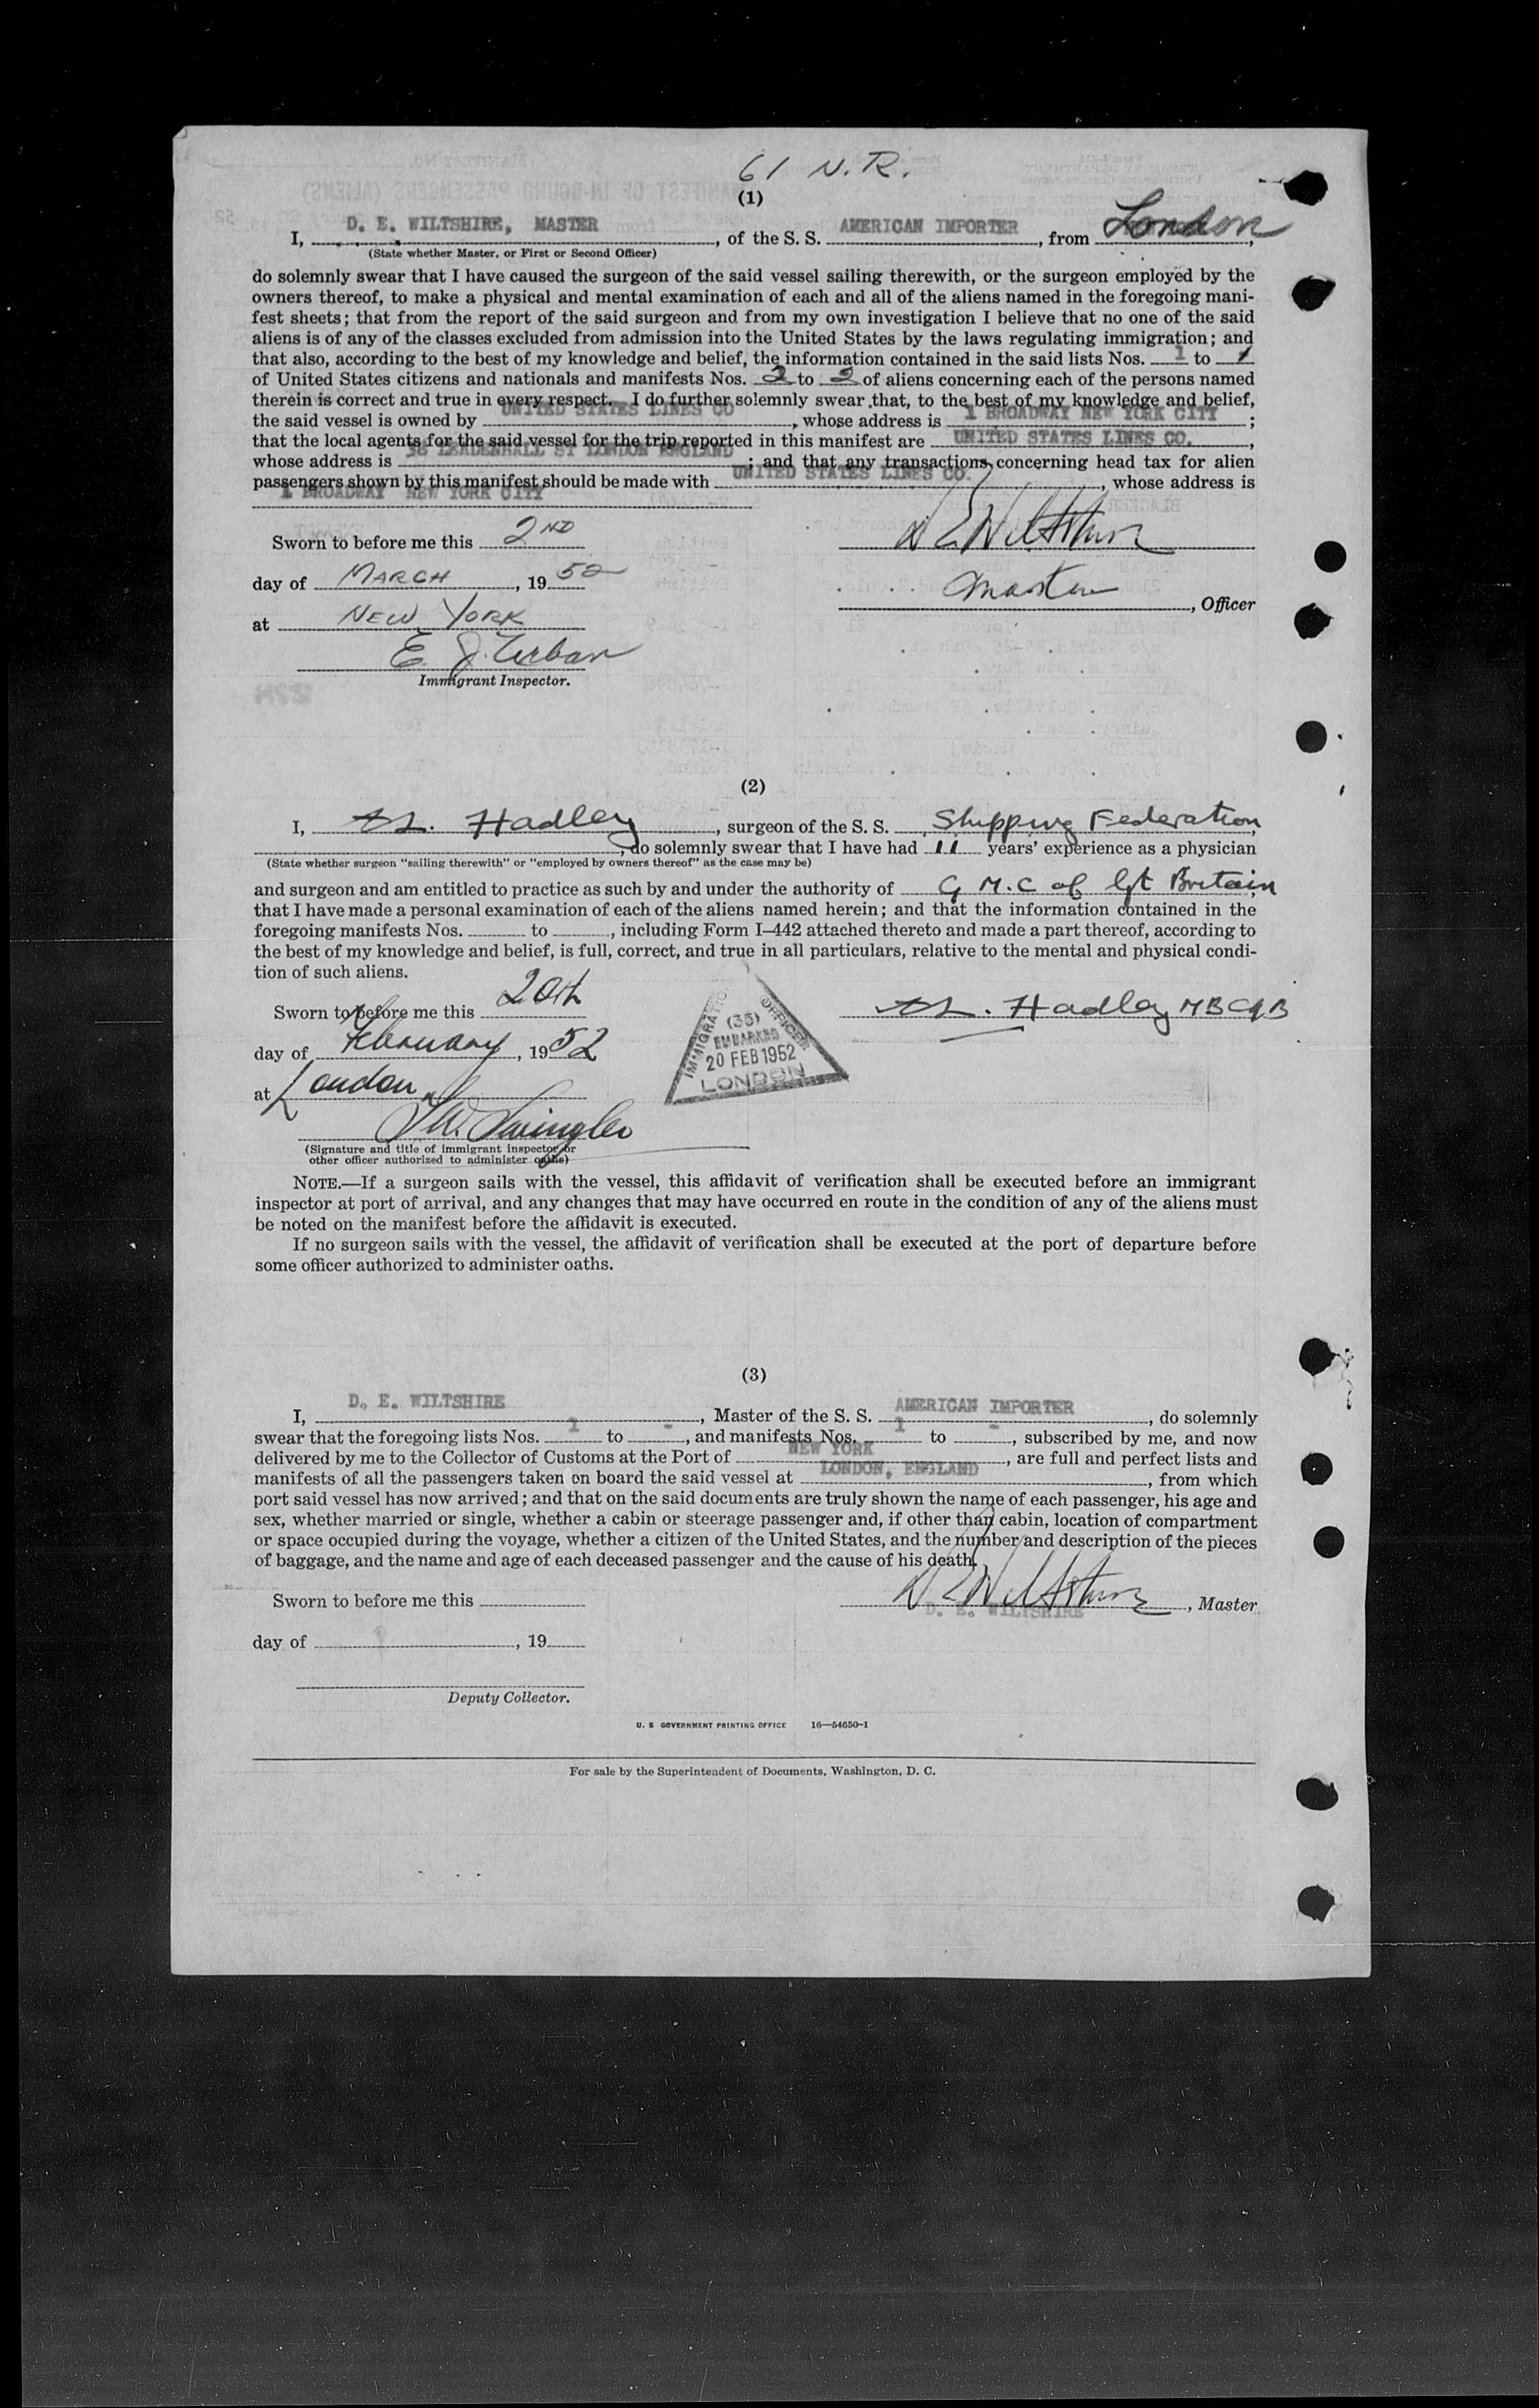 61 N.R.
(1)
I, D. E. WILTSHIRE, MASTER, of the S. S. AMERICAN IMPORTER, from London,
(State whether Master, or First or Second Officer)
do solemnly swear that I have caused the surgeon of the said vessel sailing therewith, or the surgeon employed by the
owners thereof, to make a physical and mental examination of each and all of the aliens named in the foregoing mani-
fest sheets; that from the report of the said surgeon and from my own investigation I believe that no one of the said
aliens is of any of the classes excluded from admission into the United States by the laws regulating immigration; and
that also, according to the best of my knowledge and belief, the information contained in the said lists Nos. 1 to 1
of United States citizens and nationals and manifests Nos. 2 to 2 of aliens concerning each of the persons named
therein is correct and true in every respect. I do further solemnly swear that, to the best of my knowledge and belief,
the said vessel is owned by UNITED STATES LINES CO, whose address is 1 BROADWAY NEW YORK CITY;
that the local agents for the said vessel for the trip reported in this manifest are UNITED STATES LINES CO.,
whose address is 38 LEADENHALL ST LONDON ENGLAND; and that any transactions concerning head tax for alien
passengers shown by this manifest should be made with UNITED STATES LINES CO., whose address is
1 BROADWAY NEW YORK CITY
Sworn to before me this 2ND
D E Wiltshire
day of MARCH, 1952
Master, Officer
at NEW YORK
E. J. Urban
Immigrant Inspector.
(2)
I, Hadley, surgeon of the S. S. Shipping Federation,
, do solemnly swear that I have had 11 years' experience as a physician
(State whether surgeon "sailing therewith" or "employed by owners thereof" as the case may be)
and surgeon and am entitled to practice as such by and under the authority of G M.C of Gt Britain
that I have made a personal examination of each of the aliens named herein; and that the information contained in the
foregoing manifests Nos. to , including Form I-442 attached thereto and made a part thereof, according to
the best of my knowledge and belief, is full, correct, and true in all particulars, relative to the mental and physical condi-
tion of such aliens.
Sworn to before me this 20th
Hadley MB
day of February, 1952
at London
Swingler
(Signature and title of immigrant inspector or
other officer authorized to administer oaths)
IMMIGRATION OFFICER
(35)
EMBARKED
20 FEB 1952
LONDON
NOTE.—If a surgeon sails with the vessel, this affidavit of verification shall be executed before an immigrant
inspector at port of arrival, and any changes that may have occurred en route in the condition of any of the aliens must
be noted on the manifest before the affidavit is executed.
If no surgeon sails with the vessel, the affidavit of verification shall be executed at the port of departure before
some officer authorized to administer oaths.
(3)
I, D. E. WILTSHIRE, Master of the S. S. AMERICAN IMPORTER, do solemnly
swear that the foregoing lists Nos. 1 to -, and manifests Nos. 1 to -, subscribed by me, and now
delivered by me to the Collector of Customs at the Port of NEW YORK, are full and perfect lists and
manifests of all the passengers taken on board the said vessel at LONDON, ENGLAND, from which
port said vessel has now arrived; and that on the said documents are truly shown the name of each passenger, his age and
sex, whether married or single, whether a cabin or steerage passenger and, if other than cabin, location of compartment
or space occupied during the voyage, whether a citizen of the United States, and the number and description of the pieces
of baggage, and the name and age of each deceased passenger and the cause of his death.
Sworn to before me this
D E Wiltshire, Master
D. E. WILTSHIRE
day of , 19
Deputy Collector.
U. S GOVERNMENT PRINTING OFFICE 16—54650-1
For sale by the Superintendent of Documents, Washington, D. C.